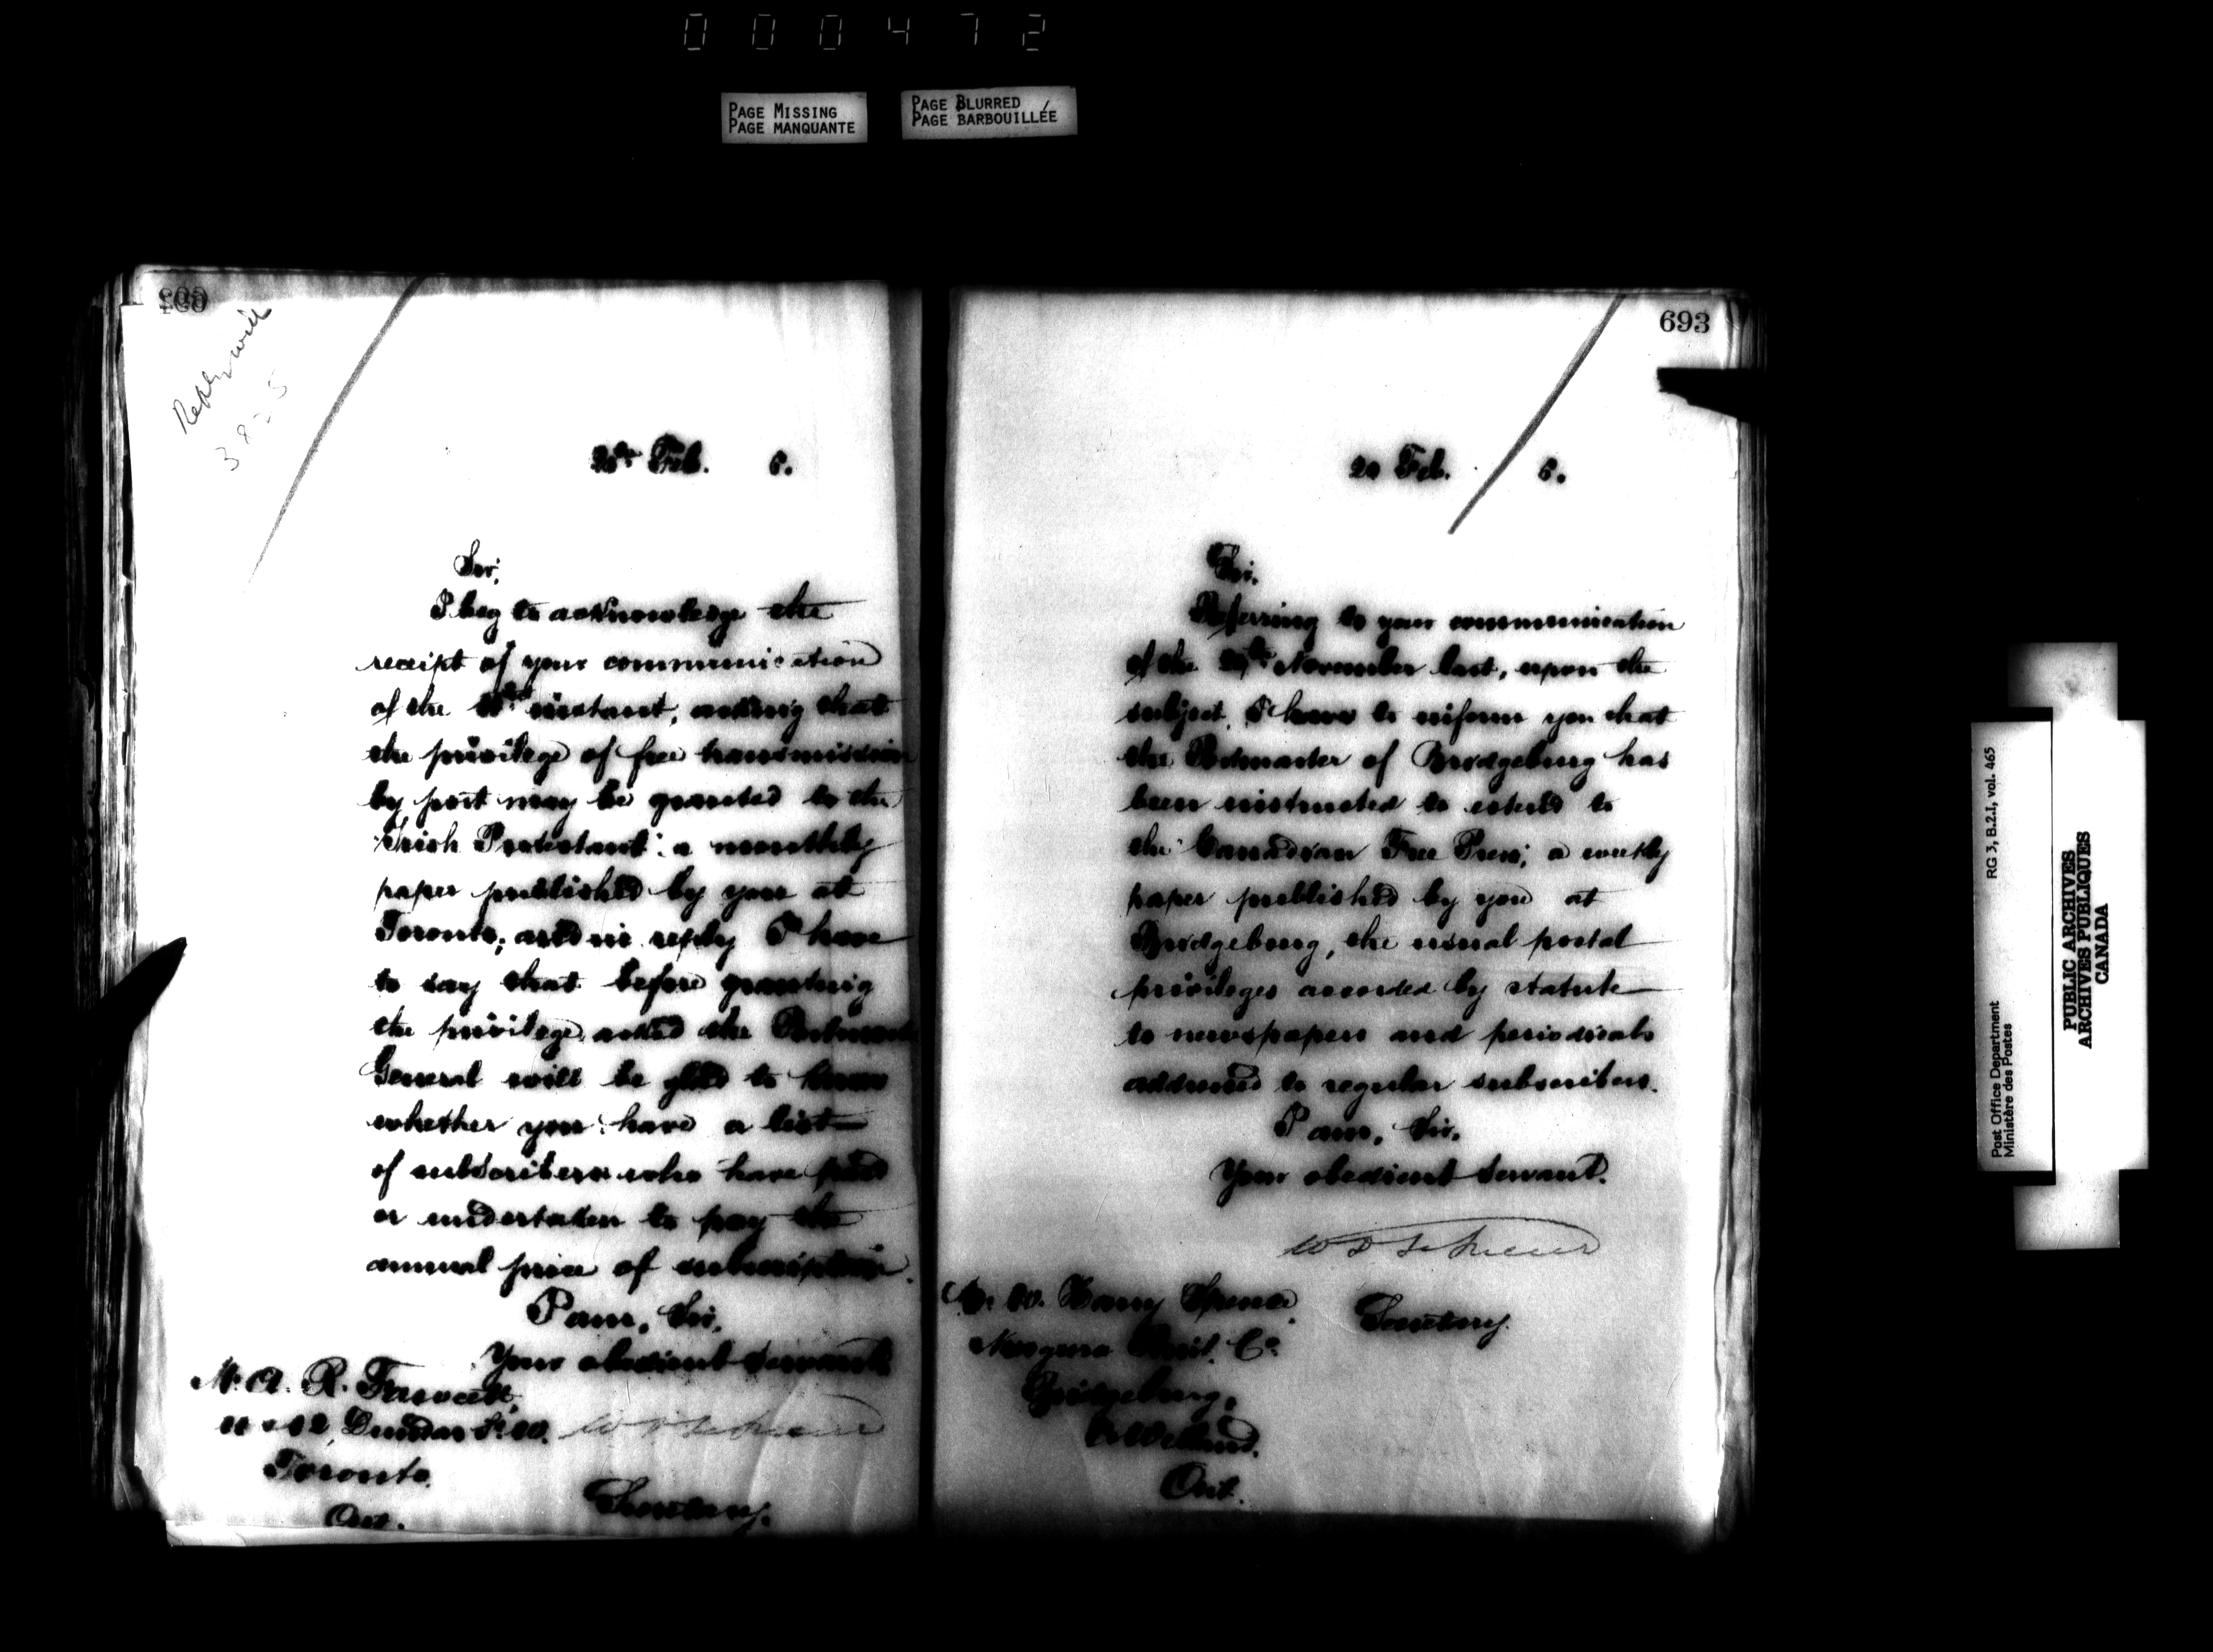 000472
PAGE MISSING
PAGE MANQUANTE
PAGE BLURRED
PAGE BARBOUILLÉE
Reply with
3825
Feb. 6.
Sir,
I beg to acknowledge the
receipt of your communication
of the instant, asking that
the privilege of free transmission
by post may be granted to the
"Irish Protestant", a monthly
paper published by you at
Toronto; and in reply I have
to say that before granting
the privilege asked the Postmaster
General will be glad to know
whether you have a list
of subscribers who have paid
or undertaken to pay the
annual price of subscription.
I am, Sir,
Your obedient servant,
Mr. A. R. Fawcett,
Dundas St. W.
Toronto.
Ont.
Secretary.
693
20 Feb. 6.
Sir,
Referring to your communication
of the November last, upon the
subject, I have to inform you that
the Postmaster of Bridgeburg has
been instructed to extend to
the "Canadian Free Press", a weekly
paper published by you at
Bridgeburg, the usual postal
privileges accorded by statute
to newspapers and periodicals
addressed to regular subscribers.
I am, Sir,
Your obedient Servant.
W. Harry Spence,
Secretary.
Co.
Bridgeburg,
Co Welland.
Ont.
Post Office Department
Ministère des Postes
RG 3, B.2.1, vol. 465
PUBLIC ARCHIVES
ARCHIVES PUBLIQUES
CANADA